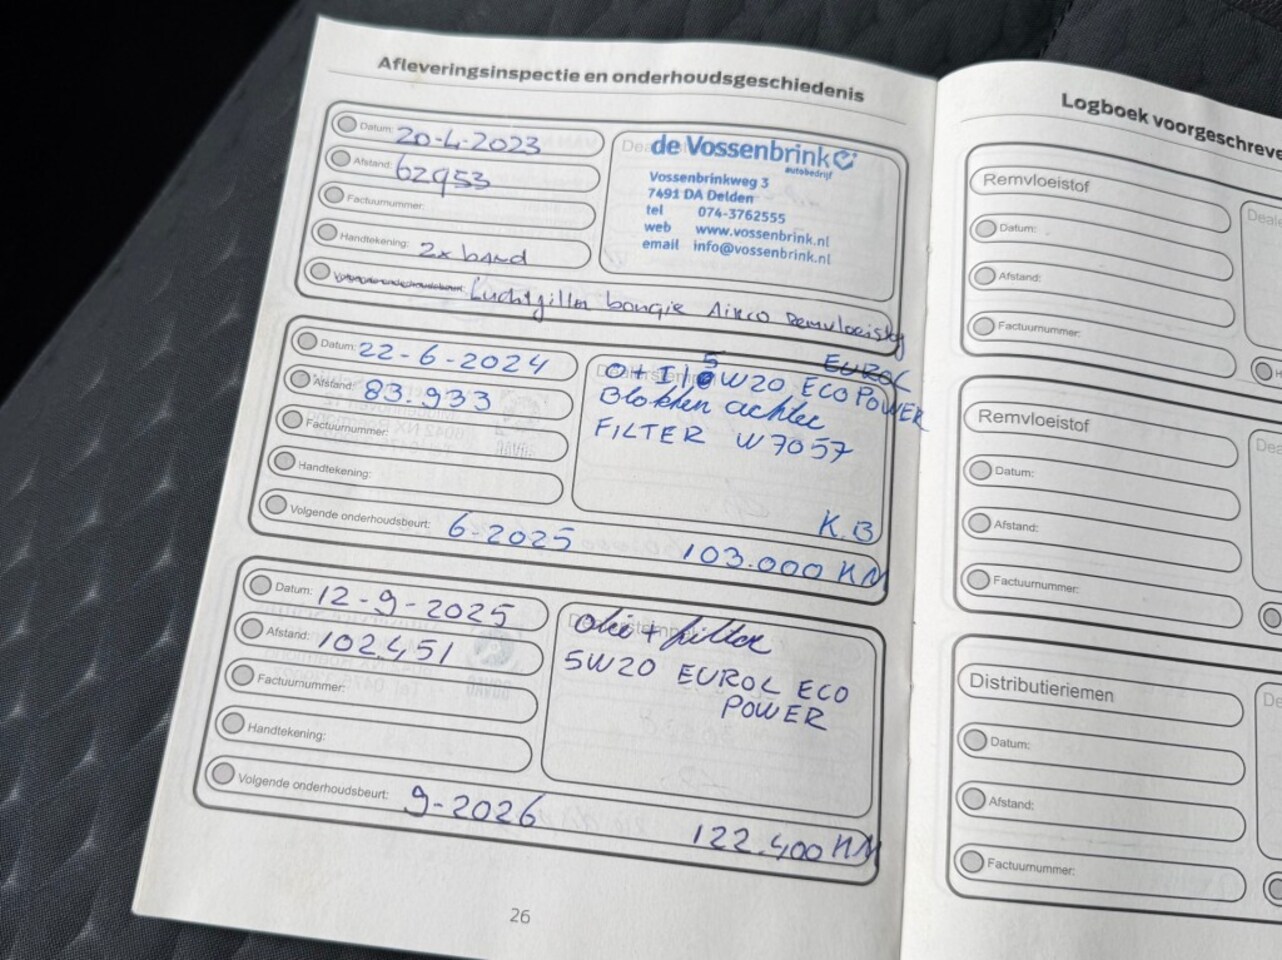 Afleveringsinspectie en onderhoudsgeschiedenis
Datum: 20-4-2023
Afstand: 62953
Factuurnummer:
Handtekening: 2x band
Volgende onderhoudsbeurt: Luchtfilter bougie Airco Remvloeistof
de Vossenbrink
autobedrijf
Vossenbrinkweg 3
7491 DA Delden
tel 074-3762555
web www.vossenbrink.nl
email info@vossenbrink.nl
Datum: 22-6-2024
Afstand: 83.933
Factuurnummer:
Handtekening:
Volgende onderhoudsbeurt: 6-2025 103.000 KM
EUROL
5W20 ECOPOWER
Blokken achter
FILTER W7057
K.B
Datum: 12-9-2025
Afstand: 102.451
Factuurnummer:
Handtekening:
Volgende onderhoudsbeurt: 9-2026 122.400 KM
Dealerstempel
Olie + filter
5W20 EUROL ECO
POWER
26
Logboek voorgeschreve
Remvloeistof
Datum:
Afstand:
Factuurnummer:
Remvloeistof
Datum:
Afstand:
Factuurnummer:
Distributieriemen
Datum:
Afstand:
Factuurnummer: